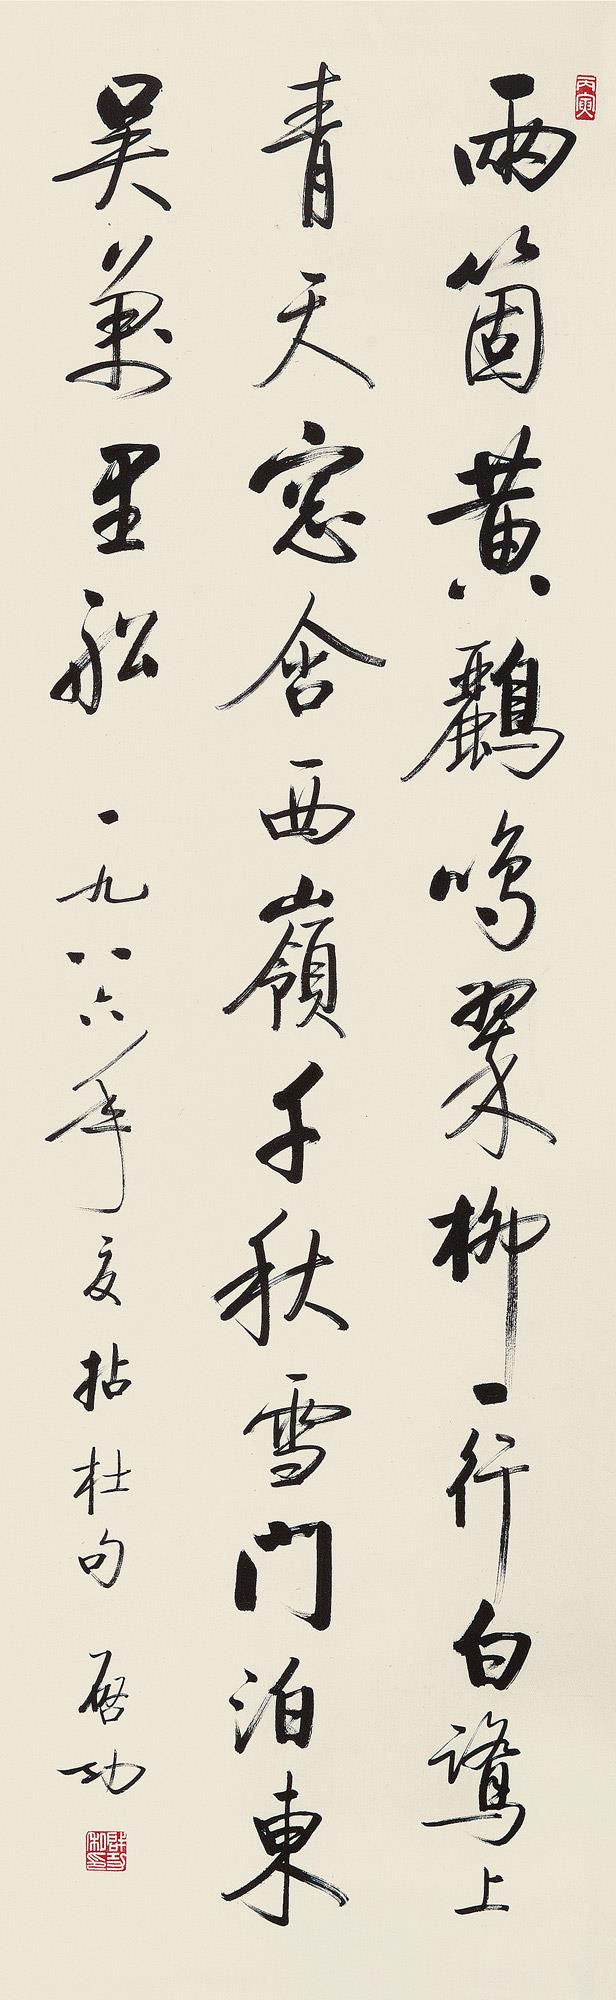 丙寅
兩箇黃鸝鳴翠柳一行白鷺上
青天窓含西嶺千秋雪門泊東
吳萬里船
一九八六年夏拈杜句 啓功